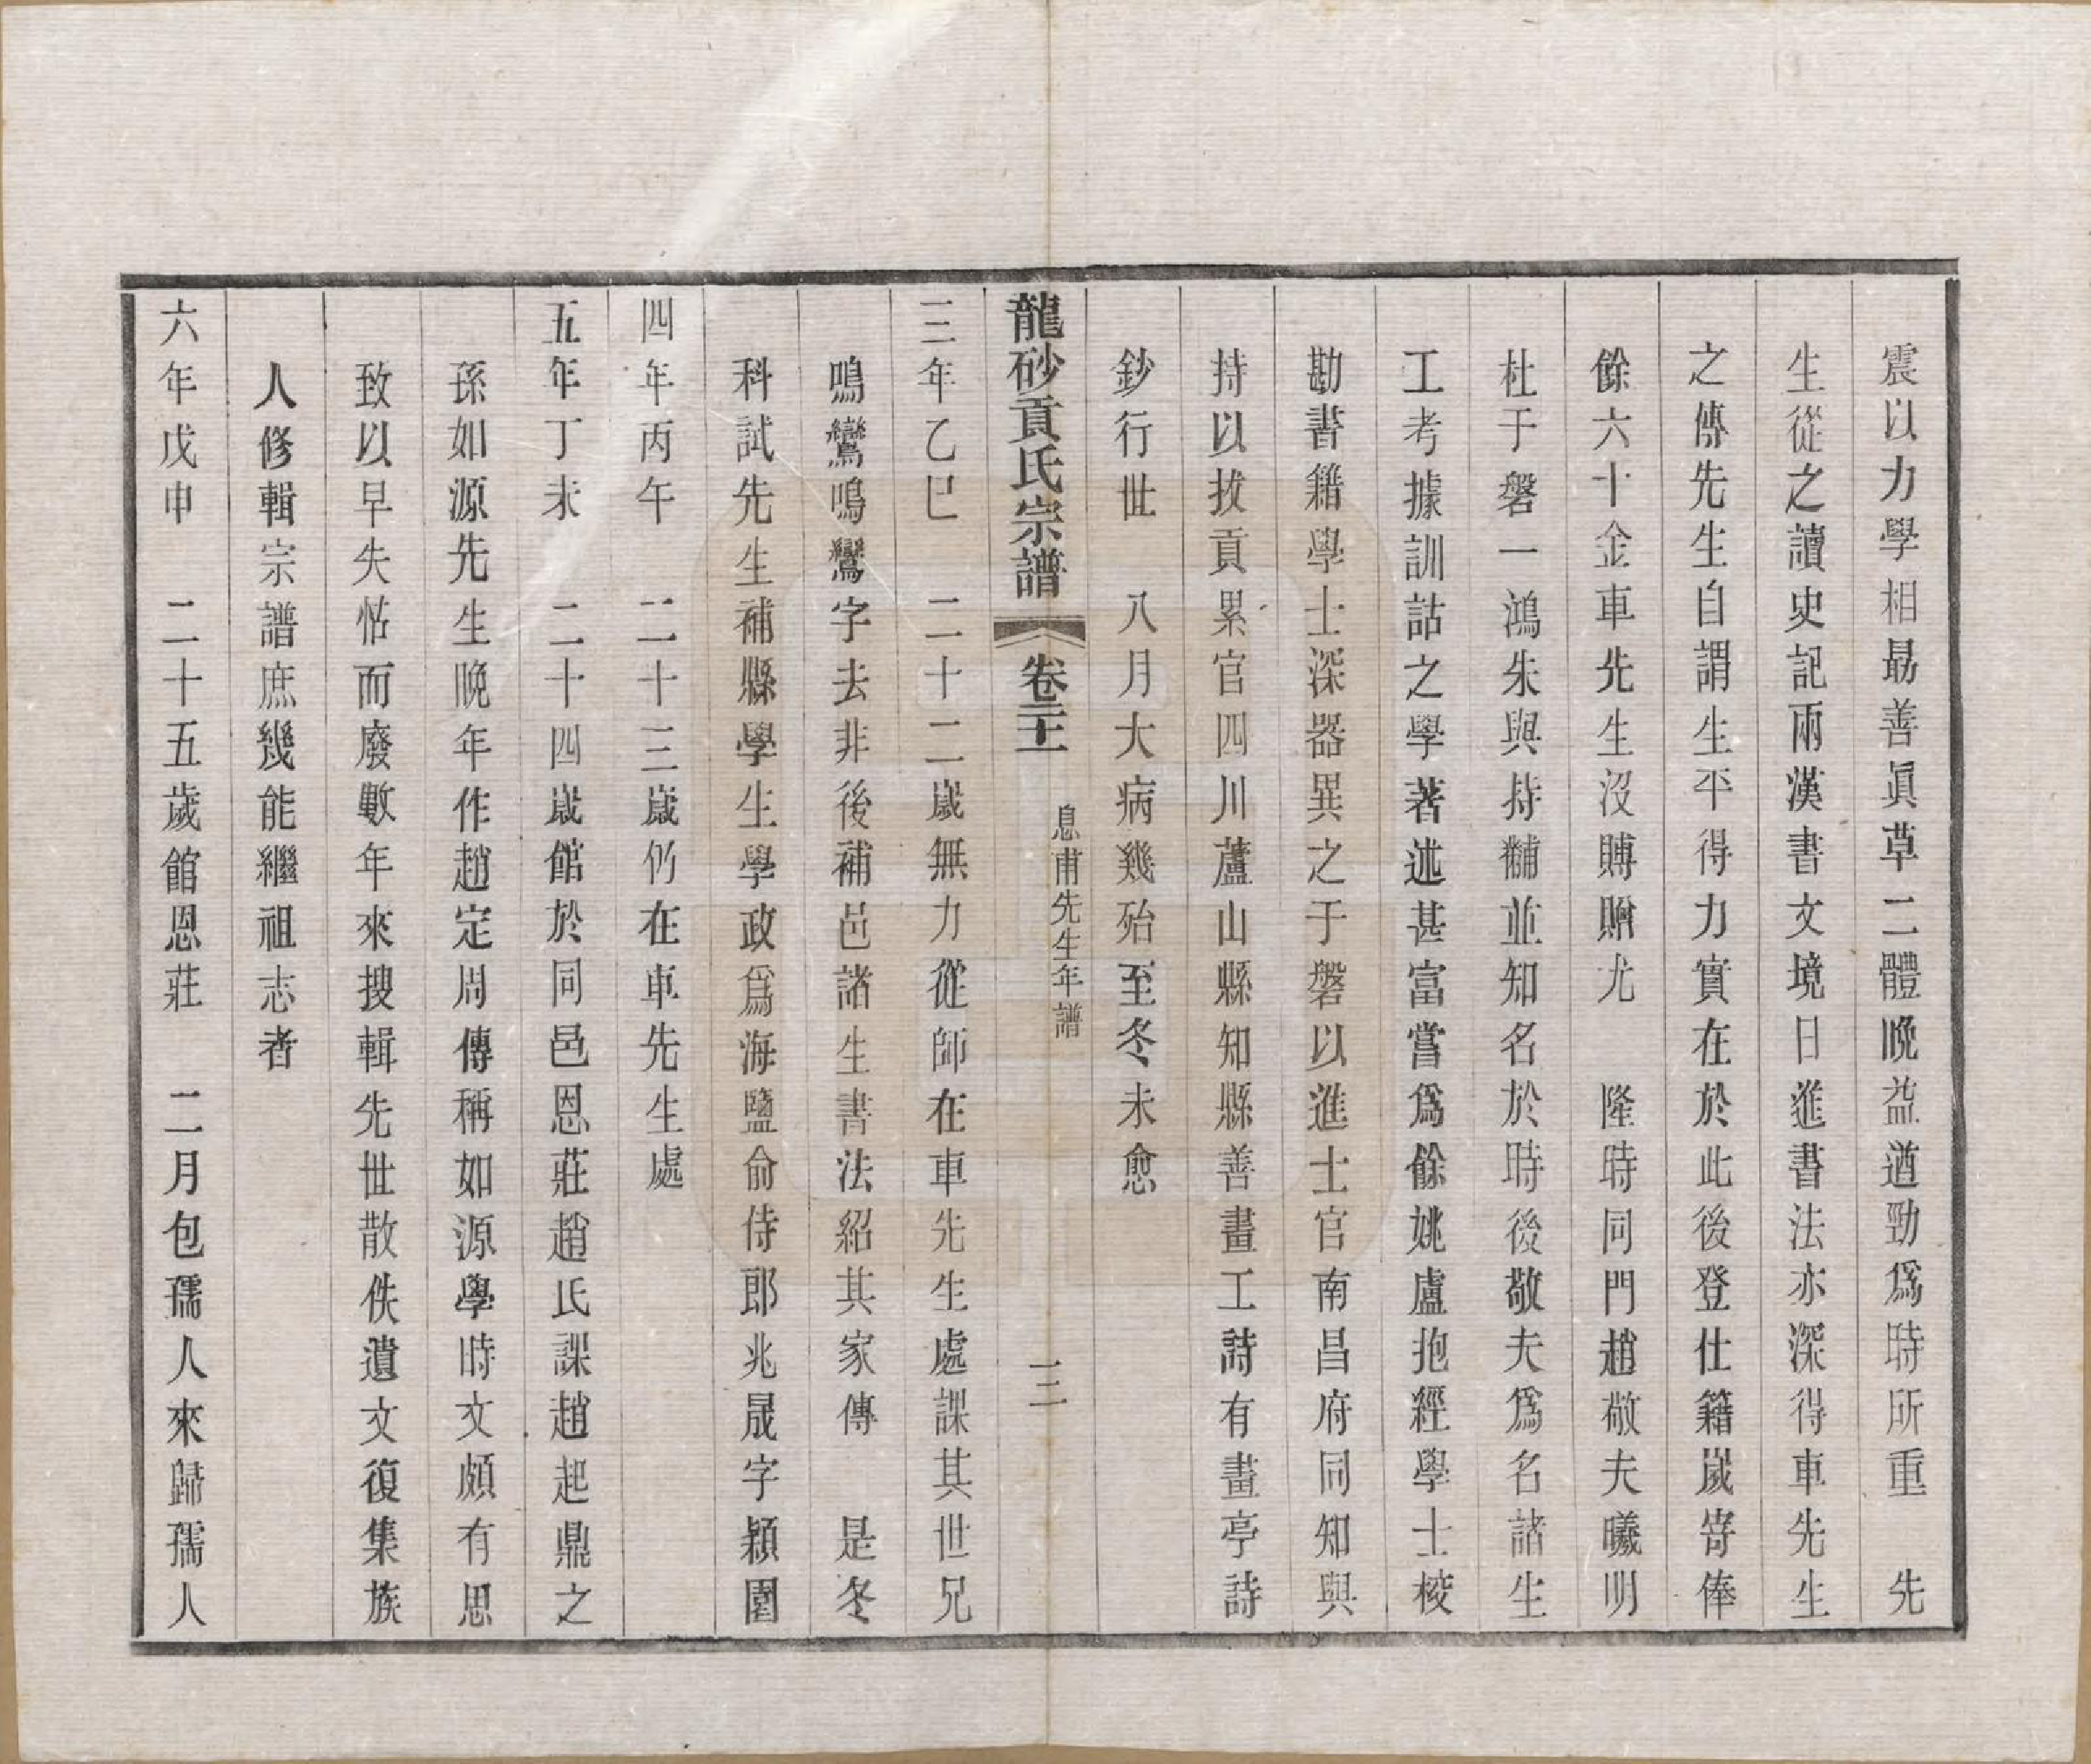 震以力學相勗善眞草二體晚益遒勁爲時所重　先
生從之讀史記兩漢書文境日進書法亦深得車先生
之傳先生自謂生平得力實在於此後登仕籍歲寄俸
餘六十金車先生沒賻贈尤　隆時同門趙敬夫曦明
杜于磐一鴻朱與持黼並知名於時後敬夫爲名諸生
工考據訓詁之學著述甚富嘗爲餘姚盧抱經學士校
勘書籍學士深器異之于磐以進士官南昌府同知與
持以拔貢累官四川蘆山縣知縣善畫工詩有畫亭詩
鈔行世　八月大病幾殆至冬未愈
龍砂貢氏宗譜　卷二十一　息甫先生年譜　三
三年乙巳　二十二歲無力從師在車先生處課其世兄
鳴鸞鳴鸑字去非後補邑諸生書法紹其家傳　是冬
科試先生補縣學生學政爲海鹽俞侍郎兆晟字穎園
四年丙午　二十三歲仍在車先生處
五年丁未　二十四歲館於同邑恩莊趙氏課趙起鼎之
孫如源先生晚年作趙定周傳稱如源學時文頗有思
致以早失怙而廢數年來搜輯先世散佚遺文復集族
人修輯宗譜庶幾能繼祖志者
六年戊申　二十五歲館恩莊　二月包孺人來歸孺人